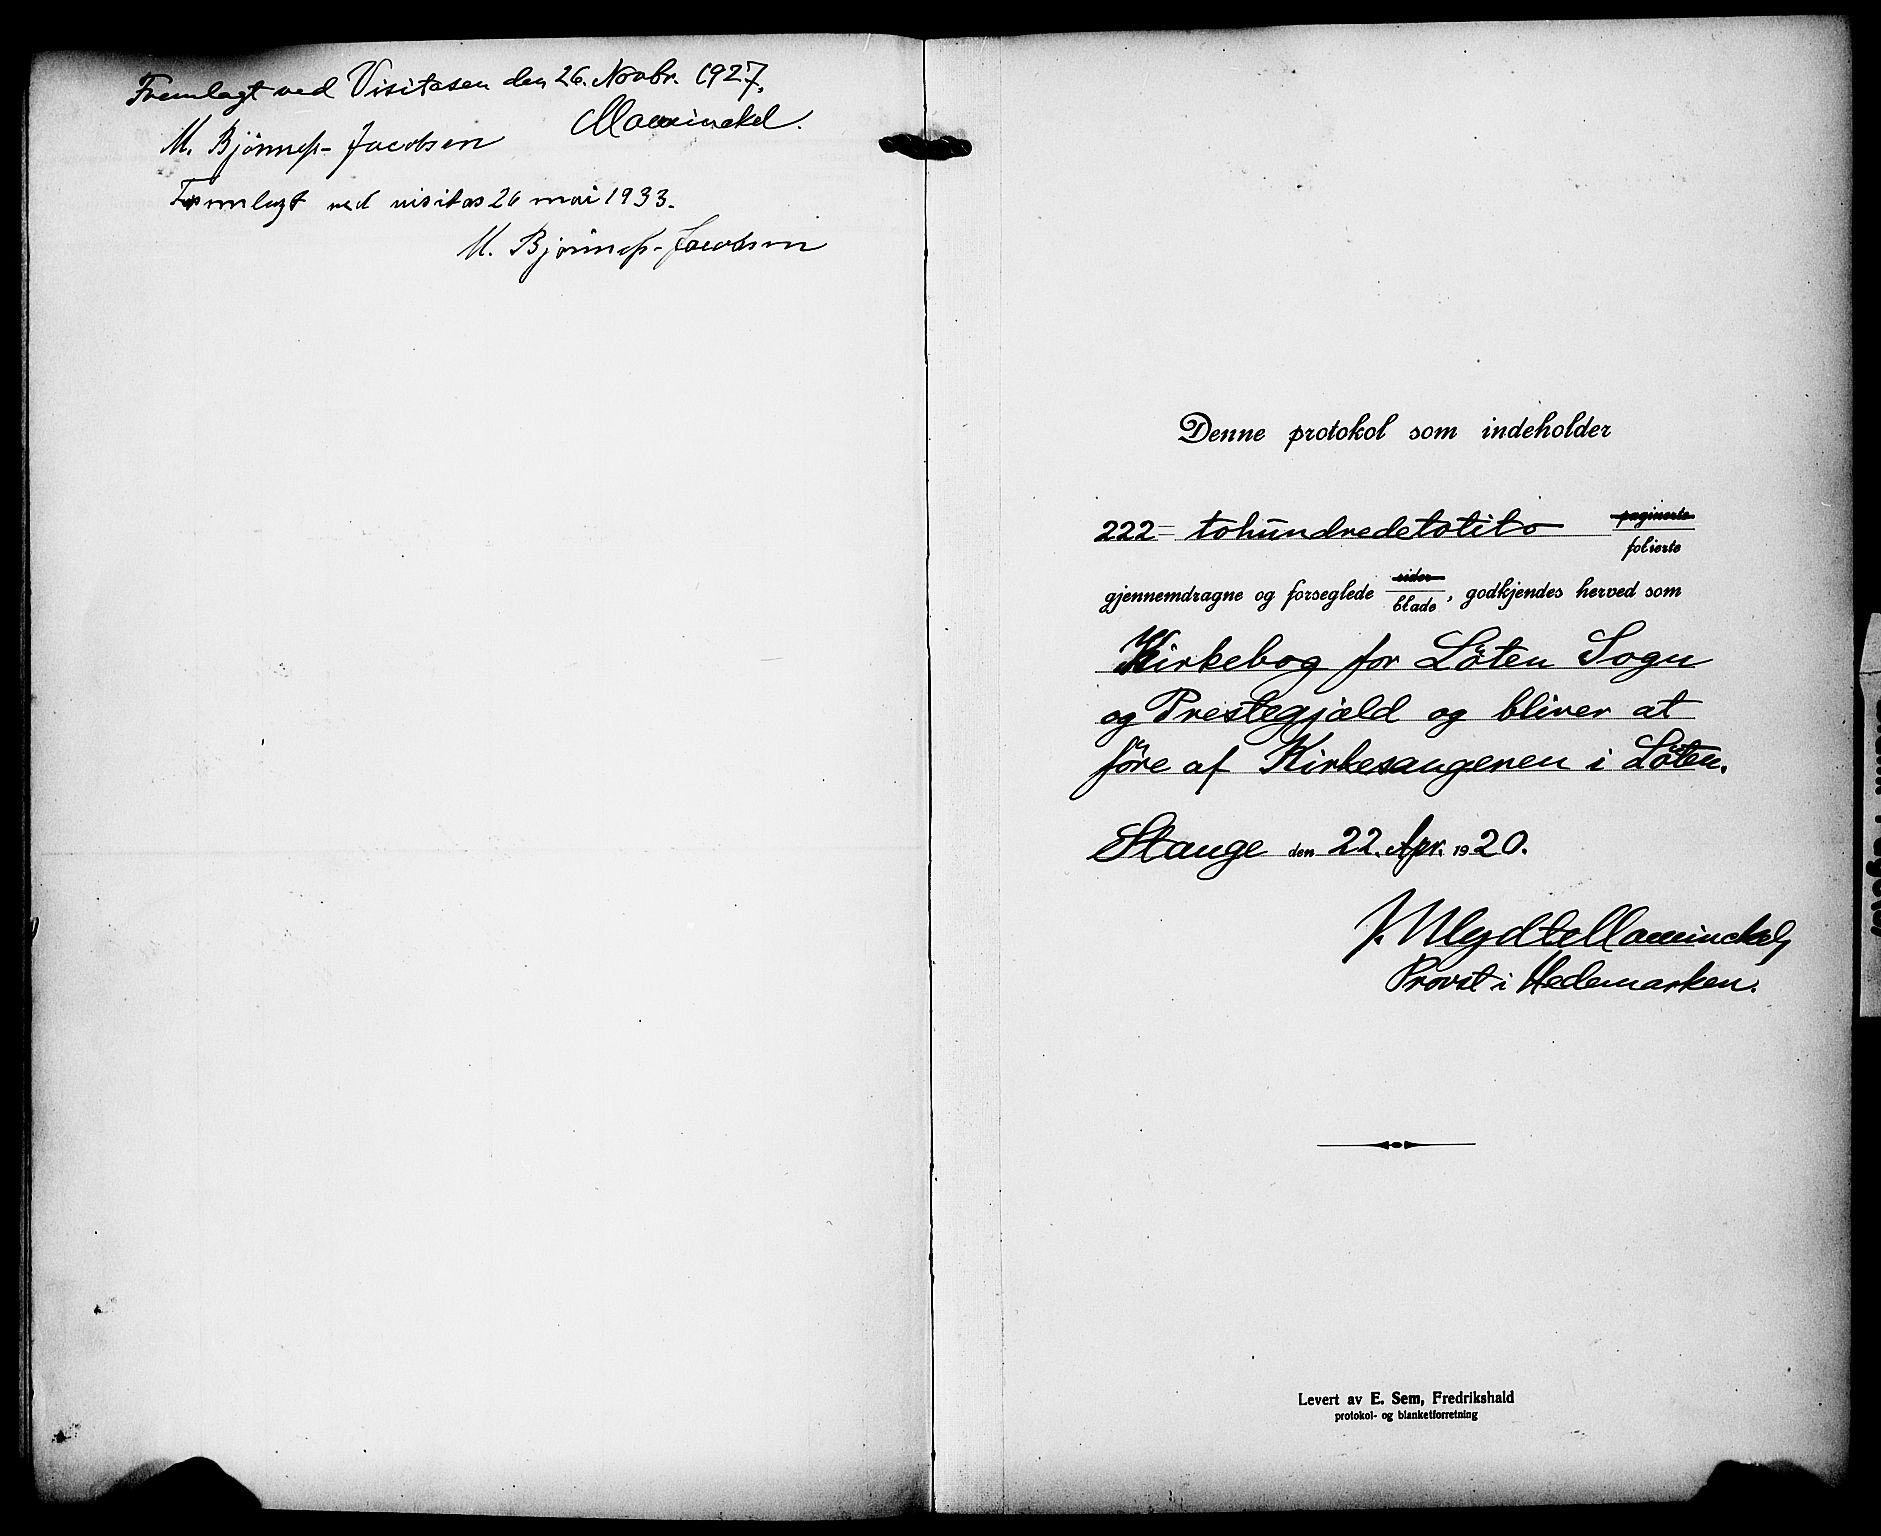 Fremlagt ved Visitasen den 26. Novbr. 1927.
Mowinckel.
M. Bjønness-Jacobsen
Fremlagt ved visitas 26 mai 1933.
M. Bjønness-Jacobsen
Denne protokol som indeholder
222= tohundredetotito paginerte
folierte
gjennemdragne og forseglede sider
blade, godkjendes herved som
Kirkebog for Löten Sogn
og Prestegjæld og bliver at
føre af Kirkesangeren i Löten.
Stange den 22. Apr. 1920.
Mowinckel
Provst i Hedemarken.
Levert av E. Sem, Fredrikshald
protokol- og blanketforretning